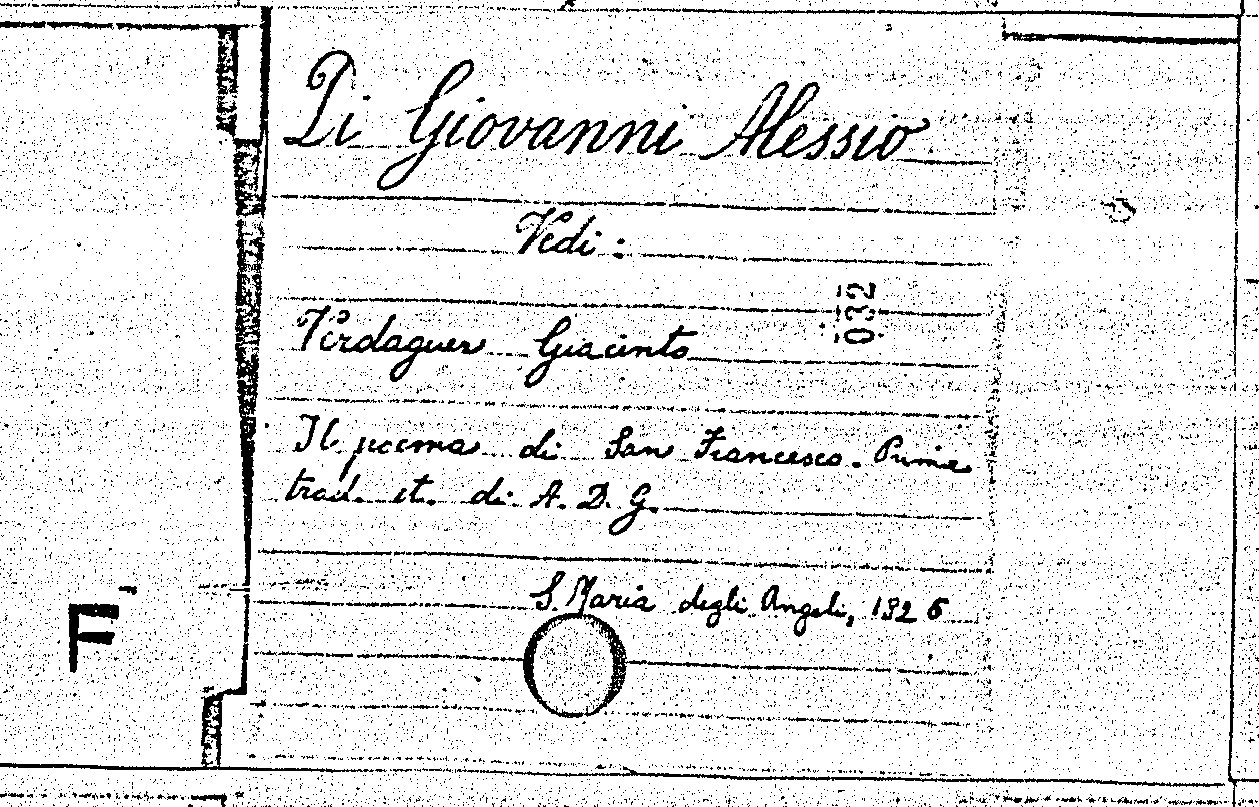 Di Giovanni Alessio
Vedi:
032
Verdaguer Giacinto
Il poema di San Francesco. Prima
trad. it. di A. D. G.
S. Maria degli Angeli, 1926
F